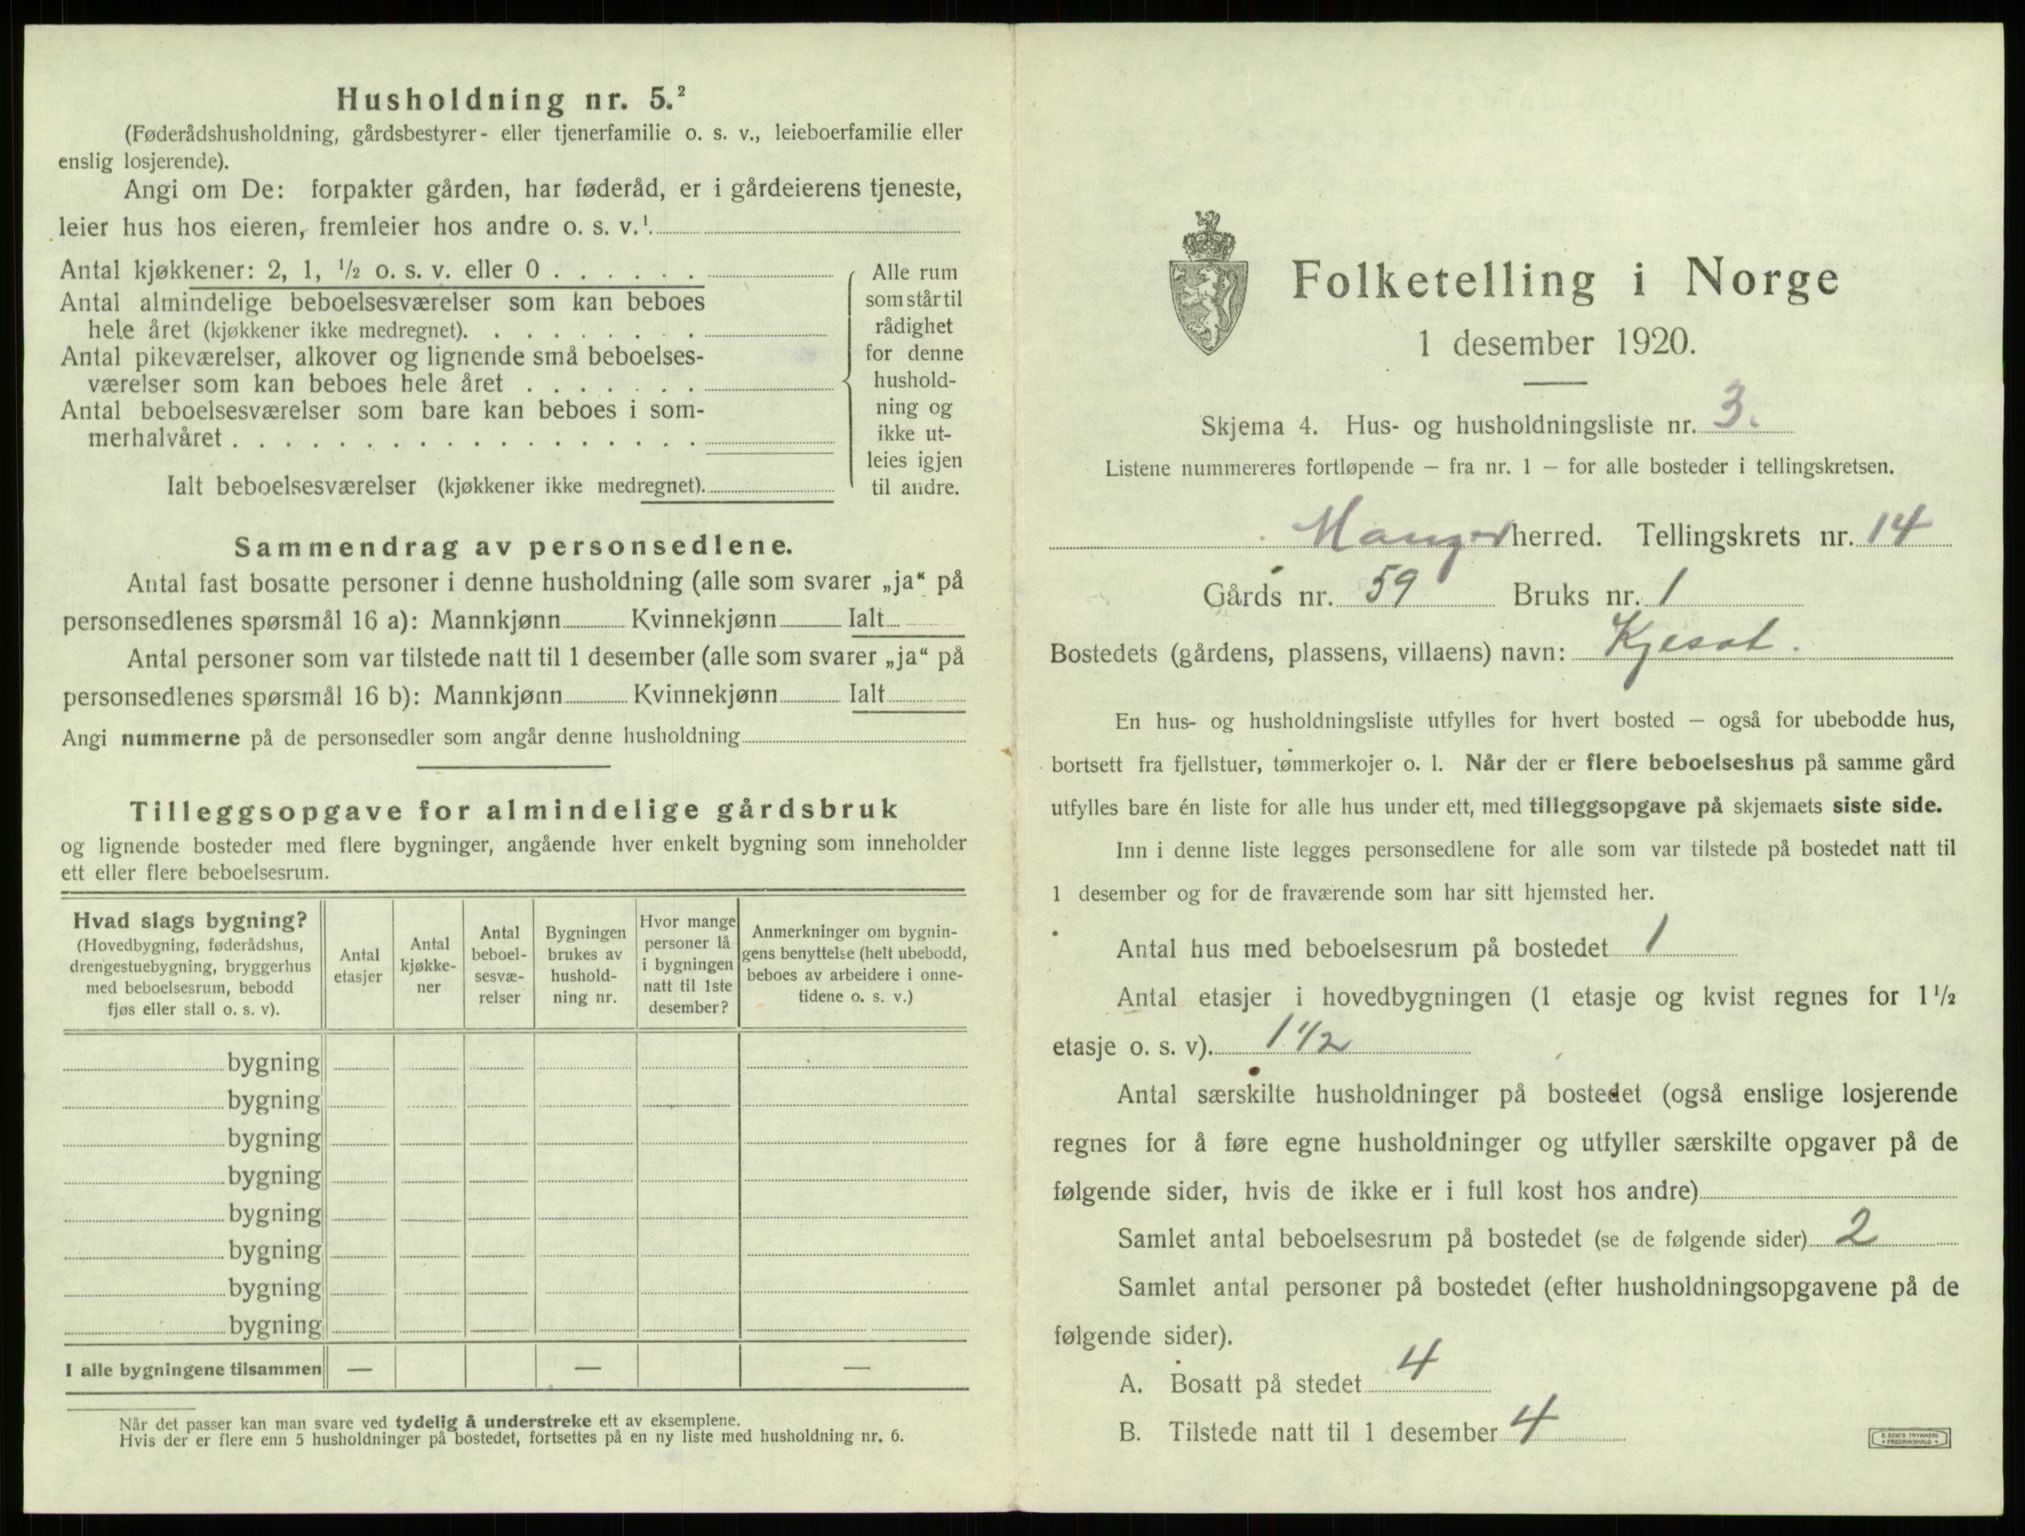 Husholdning nr. 5.²
(Føderådshusholdning, gårdsbestyrer- eller tjenerfamilie o. s. v., leieboerfamilie eller
enslig losjerende).
Angi om De: forpakter gården, har føderåd, er i gårdeierens tjeneste,
leier hus hos eieren, fremleier hos andre o. s. v.¹
Antal kjøkkener: 2, 1, ½ o. s. v. eller 0 . . . . . .
Antal almindelige beboelsesværelser som kan beboes
hele året (kjøkkener ikke medregnet). . . . . . . .
Antal pikeværelser, alkover og lignende små beboelses-
værelser som kan beboes hele året . . . . . . .
Antal beboelsesværelser som bare kan beboes i som-
merhalvåret . . . . . . . . . . . . . . . . . .
Ialt beboelsesværelser (kjøkkener ikke medregnet).
Alle rum
som står til
rådighet
for denne
hushold-
ning og
ikke ut-
leies igjen
til andre.
Sammendrag av personsedlene.
Antal fast bosatte personer i denne husholdning (alle som svarer „ja“ på
personsedlenes spørsmål 16 a): Mannkjønn Kvinnekjønn Ialt
Antal personer som var tilstede natt til 1 desember (alle som svarer „ja“ på
personsedlenes spørsmål 16 b): Mannkjønn Kvinnekjønn Ialt
Angi nummerne på de personsedler som angår denne husholdning
Tilleggsopgave for almindelige gårdsbruk
og lignende bosteder med flere bygninger, angående hver enkelt bygning som inneholder
ett eller flere beboelsesrum.
Hvad slags bygning?
(Hovedbygning, føderådshus,
drengestuebygning, bryggerhus
med beboelsesrum, bebodd
fjøs eller stall o. s. v).
Antal
etasjer
Antal
kjøkke-
ner
Antal
beboel-
sesvæ-
relser
Bygningen
brukes av
hushold-
ning nr.
Hvor mange
personer lå
i bygningen
natt til 1ste
desember?
Anmerkninger om bygnin-
gens benyttelse (helt ubebodd,
beboes av arbeidere i onne-
tidene o. s. v.)
bygning
bygning
bygning
bygning
bygning
bygning
bygning
bygning
I alle bygningene tilsammen — — —
Når det passer kan man svare ved tydelig å understreke ett av eksemplene.
Hvis der er flere enn 5 husholdninger på bostedet, fortsettes på en ny liste med husholdning nr. 6.
Folketelling i Norge
1 desember 1920.
Skjema 4. Hus- og husholdningsliste nr. 3.
Listene nummereres fortløpende — fra nr. 1 — for alle bosteder i tellingskretsen.
Manger herred. Tellingskrets nr. 14
Gårds nr. 59 Bruks nr. 1
Bostedets (gårdens, plassens, villaens) navn: Kjesot.
En hus- og husholdningsliste utfylles for hvert bosted — også for ubebodde hus,
bortsett fra fjellstuer, tømmerkojer o. l. Når der er flere beboelseshus på samme gård
utfylles bare én liste for alle hus under ett, med tilleggsopgave på skjemaets siste side.
Inn i denne liste legges personsedlene for alle som var tilstede på bostedet natt til
1 desember og for de fraværende som har sitt hjemsted her.
Antal hus med beboelsesrum på bostedet 1
Antal etasjer i hovedbygningen (1 etasje og kvist regnes for 1½
etasje o. s. v). 1½
Antal særskilte husholdninger på bostedet (også enslige losjerende
regnes for å føre egne husholdninger og utfyller særskilte opgaver på de
følgende sider, hvis de ikke er i full kost hos andre)
Samlet antal beboelsesrum på bostedet (se de følgende sider) 2
Samlet antal personer på bostedet (efter husholdningsopgavene på de
følgende sider).
A. Bosatt på stedet 4
B. Tilstede natt til 1 desember 4